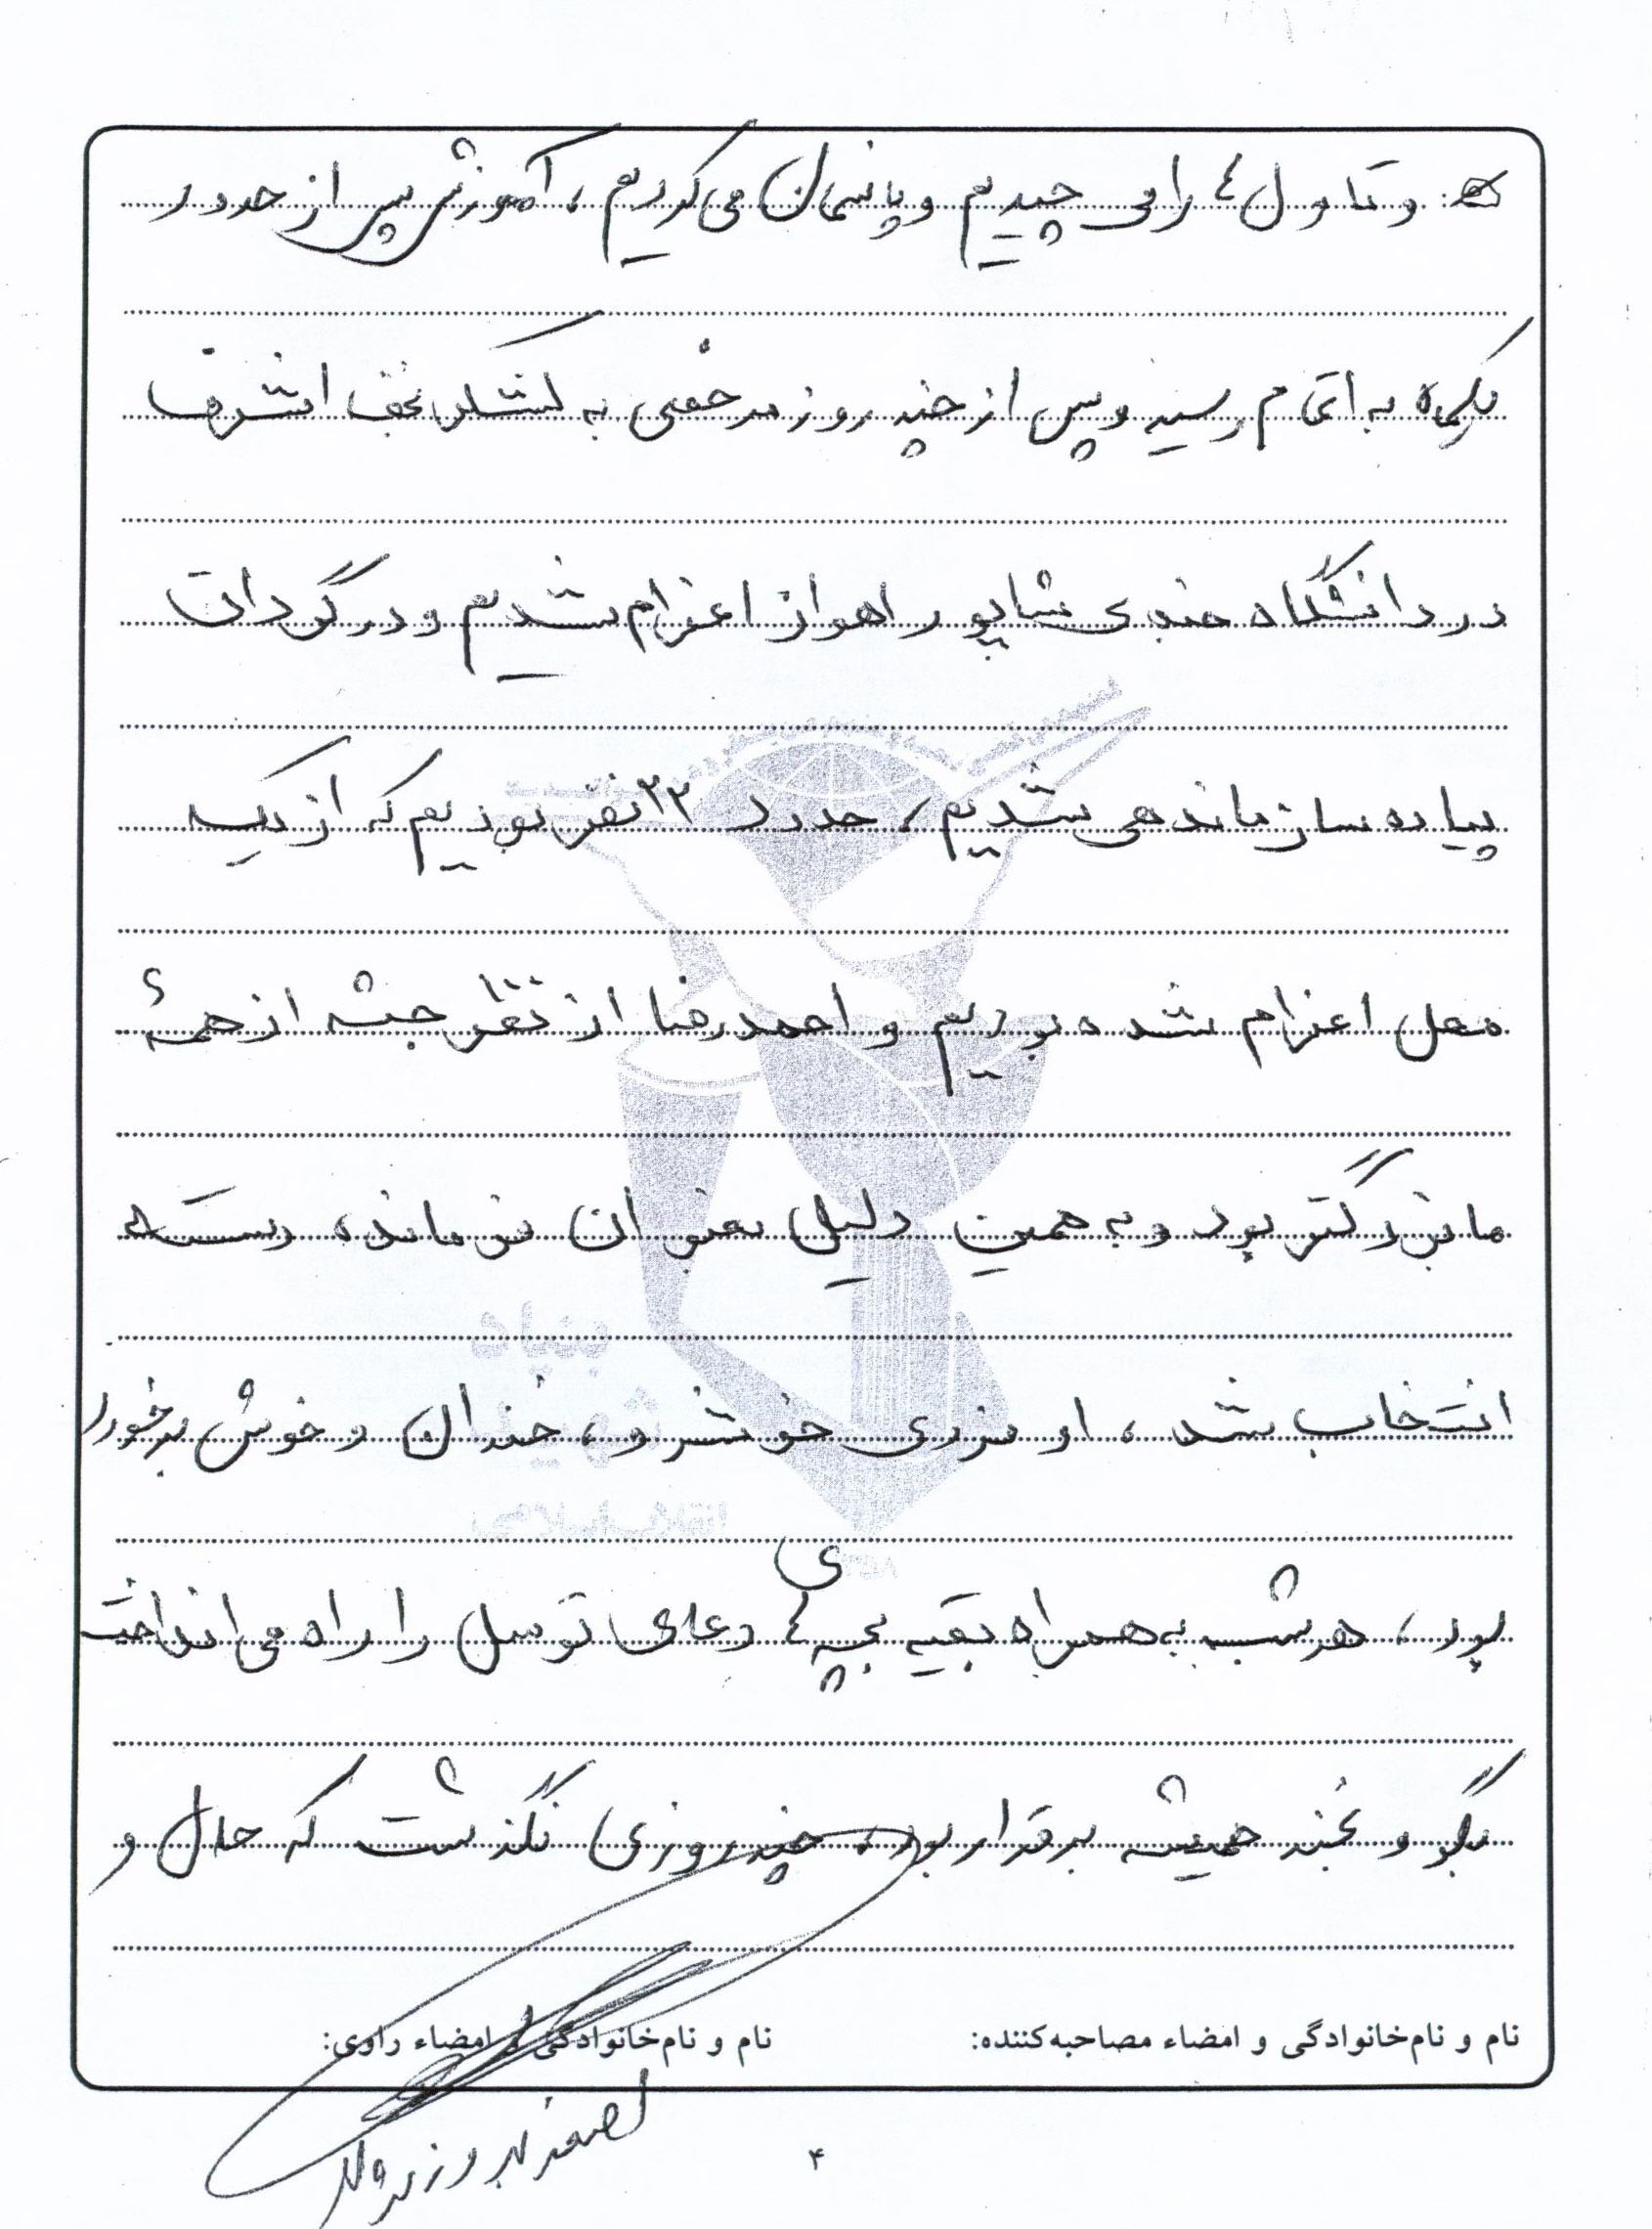 و تاول ها را می چیدیم و پانسمان می کردیم، آموزش پس از حدود
یکماه به اتمام رسید و پس از چند روز مرخصی به لشگر نجف اشرف
در دانشگاه جندی شاپور اهواز اعزام شدیم و در گردان
پیاده سازماندهی شدیم، حدود ۲۲ نفر بودیم که از یک
محل اعزام شده بودیم و احمدرضا از نظر جثه از همهٔ
ما بزرگتر بود و به همین دلیل بعنوان فرمانده دسته
انتخاب شد، او فردی خوشرو، خندان و خوش برخورد
بود، هر شب به همراه بقیه بچه های دعای توسل را راه می انداخت
بگو و بخند همیشه برقرار بود، چند روزی نگذشت که حال و
نام و نام‌خانوادگی و امضاء مصاحبه‌کننده:
نام و نام‌خانوادگی و امضاء راوی:
۴
بنیاد
شهید